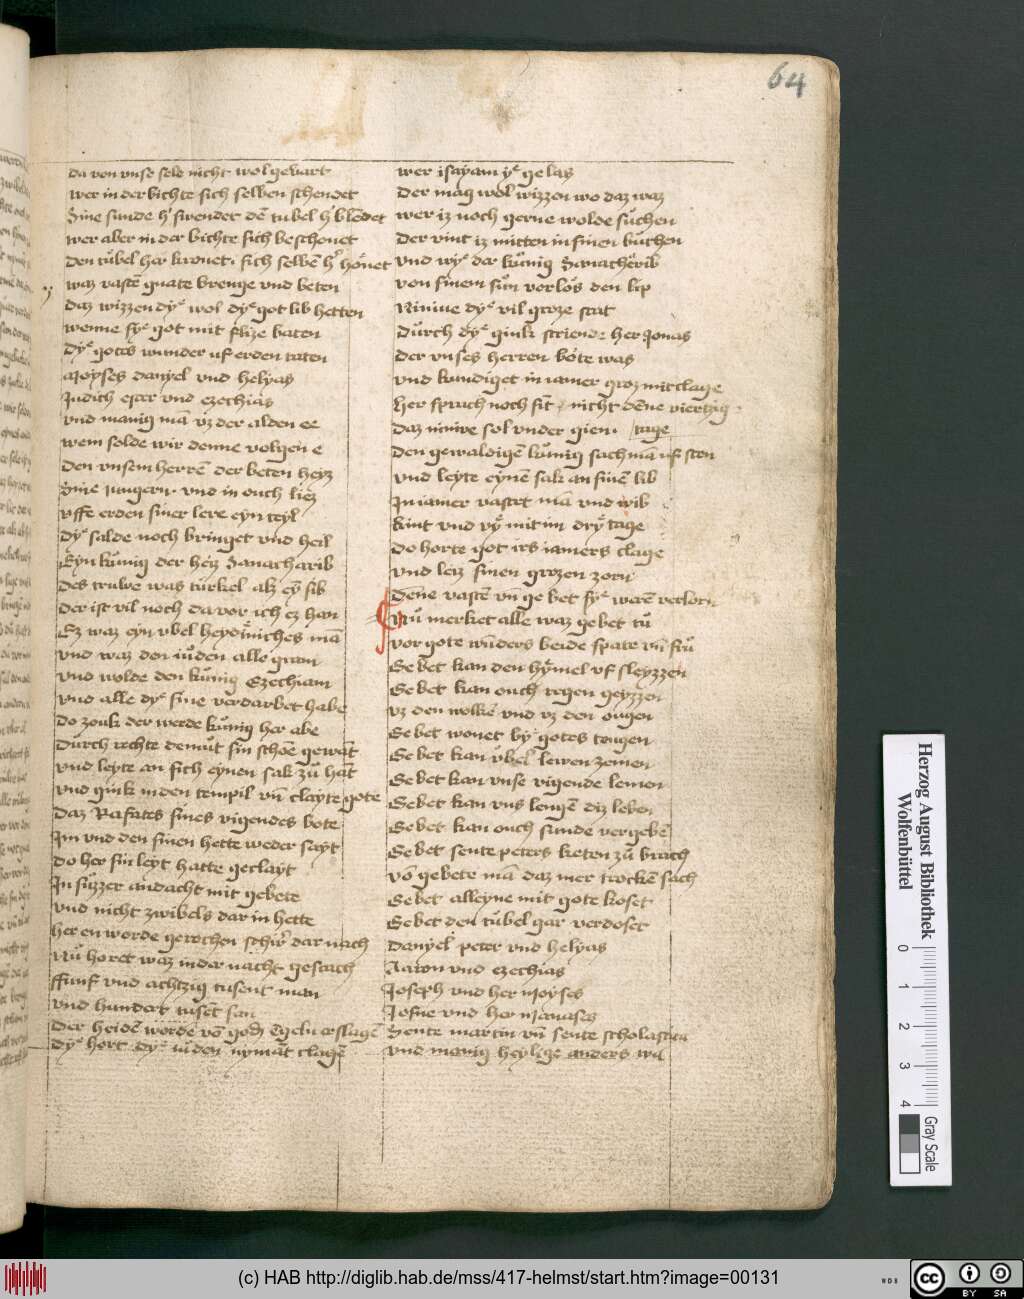 64
da von vnse sele nicht wol gebart
wer in der bichte sich selben schendet
Sine sunde h' swendet dē tubel h' blēdet
wer aber in der bichte sich beschonet
den tůbel her kronet. sich selbē h' hőnet
waz vastē gnate brenge vnd beten
daz wizzen dyͤ wol dyͤ got lib hetten
wenne syͤ got mit flize baten
dyͤ gotes wunder uf erden taten
Moyses danyel vnd helyas
Judich ester vnd ezechias
vnd manig mā vz der alden ee
wem solde wir denne volgen e
den vnsem herrē der beten hyez
Sine iungern. vnd in ouch liez
vffe erden siner lere eyn teyl
dyͤ salde noch bringet vnd heil
Eyn kůnig der hiez Sanacharib
des truwe was turkel alz eȳ sib
der ist vil noch da vor ich ez han
Ez waz eyn vbel heydēniches mā
vnd waz den iůden alle gram
vnd wolde den kůnig Ezechiam
vnd alle dyͤ sine verdarbet habe
do zouk der werde kůnig her abe
durch rechte demut sin schōe gewāt
vnd leyte an sich eynen sak zů hāt
vnd gink in den tempil vn̄ clayte gote
daz Rafates sines vigendes bote
Im vnd den sinen hette weder sayt
do her sin leyt hatte geclayt
In sůzzer andacht mit gebete
vnd nicht zwibels dar in hette
her en worde gerochen schir dar nach
Nů horet waz in der nacht gescach
ffunf vnd achtzig tusent man
vnd hundert tusēt san
Der heidē worde vō gotis Engeln erslagē
dyͤ hort dyͤ iuden nymāt clagē
wer isayam yͤ gelas
Der mag wol wizzen wo daz waz
wer iz noch gerne wolde sůchen
Der vint iz mitten in sinen bůchen
vnd wyͤ der kůnig Sanacherib
von sinem sůn verlős den lip
Niniue dyͤ vil groze stat
Důrch dyͤ gink scriende her Jonas
der vnses herren bote was
vnd kundiget in iamer groz mit clage
her sprach noch sīt nicht dēne viertzig
daz niniue sol vnder gien. tage
den gewaldigē kůnig sach mā uf sten
vnd leyte eynē sak an sinē lib
In iamer vastet mā vnd wib
kint vnd vyͤ mit im dryͤ tage
do horte got irs iamers clage
vnd liez sinen grozen zorn
dēne vastē vn̄ gebet syͤ werē verlorn
Nů merket alle waz gebet tů
vor gote wūders beide spate vn̄ frů
Gebet kan den hymel vf sleyzzen
Gebet kan ouch regen geyzzen
vz den wolkē vnd vz den ougen
Gebet wonet by gotes tougen
Gebet kan vbel lewen zemen
Gebet kan vnse vigende lemen
Gebet kan vns lengē diz leben
Gebet kan ouch sunde vergebē
Gebet sente peters keten zů brach
vō gebete mā daz mer trockē sach
Gebet alleyne mit gote koset
Gebet den tůbel gar verdoset
Danyel peter vnd helyas
Aaron vnd ezechias
Joseph vnd her moyses
Josue vnd her manases
Sente martin vn̄ sente scholastica
vnd manig heylige anders wa
Herzog August Bibliothek
Wolfenbüttel
0 1 2 3 4
Gray Scale
(c) HAB http://diglib.hab.de/mss/417-helmst/start.htm?image=00131
WDB
cc BY SA